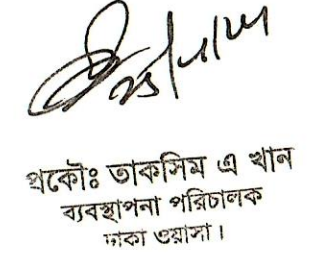 প্রকৌঃ তাকসিম এ খান
ব্যবস্থাপনা পরিচালক
ঢাকা ওয়াসা।